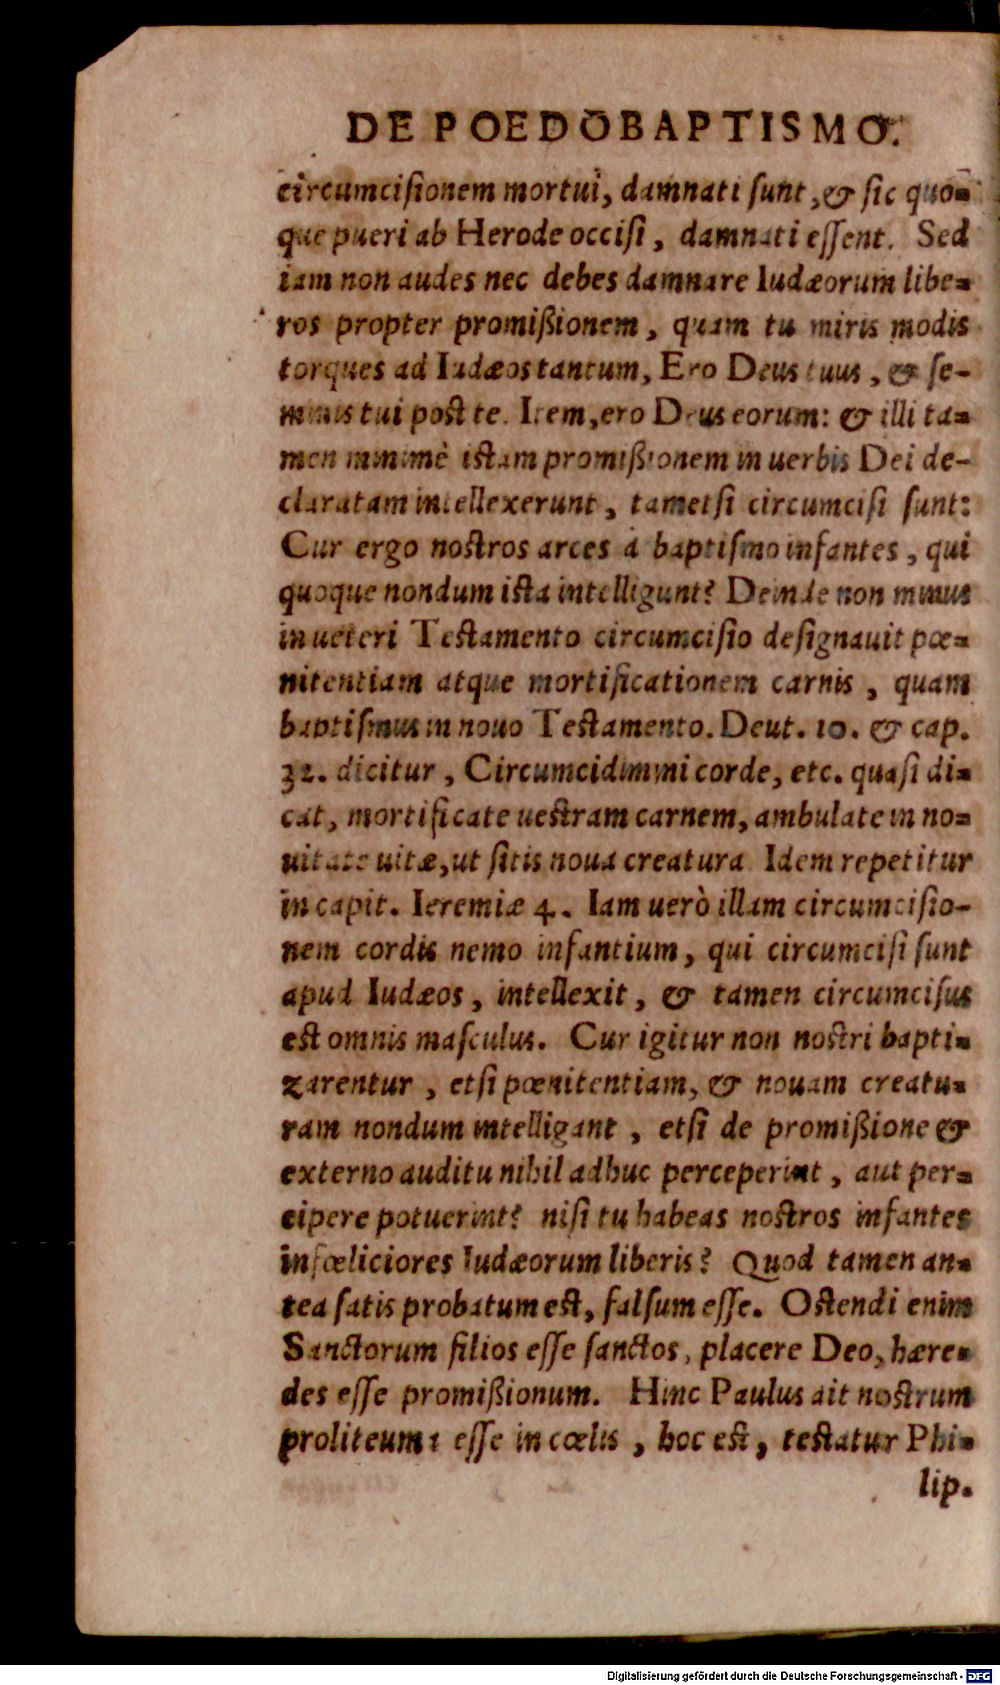 DE POEDOBAPTISMO.
circumcisionem mortui, damnati sunt, & sic quo=
que pueri ab Herode occisi, damnati essent. Sed
iam non audes nec debes damnare Iudæorum libe=
ros propter promißionem, quam tu miris modis
torques ad Iudæos tantum, Ero Deus tuus, & se-
minis tui post te. Item, ero Deus eorum: & illi ta=
men minimè istam promißionem in uerbis Dei de-
claratam intellexerunt, tametsi circumcisi sunt:
Cur ergo nostros arces à baptismo infantes, qui
quoque nondum ista intelligunt? Deinde non minus
in ueteri Testamento circumcisio designauit pœ=
nitentiam atque mortificationem carnis, quam
baptismus in nouo Testamento. Deut. 10. & cap.
32. dicitur, Circumcidimini corde, etc. quasi di=
cat, mortificate uestram carnem, ambulate in no=
uitate uitæ, ut sitis noua creatura Idem repetitur
in capit. Ieremiæ 4. Iam uerò illam circumcisio-
nem cordis nemo infantium, qui circumcisi sunt
apud Iudæos, intellexit, & tamen circumcisus
est omnis masculus. Cur igitur non nostri bapti=
zarentur, etsi pœnitentiam, & nouam creatu=
ram nondum intelligant, etsi de promißione &
externo auditu nihil adhuc perceperint, aut per=
cipere potuerint? nisi tu habeas nostros infantes
infœliciores Iudæorum liberis? Quod tamen an=
tea satis probatum est, falsum esse. Ostendi enim
Sanctorum filios esse sanctos, placere Deo, hære=
des esse promißionum. Hinc Paulus ait nostrum
proliteuma esse in cœlis, hoc est, testatur Phi=
lip.
Digitalisierung gefördert durch die Deutsche Forschungsgemeinschaft - DFG